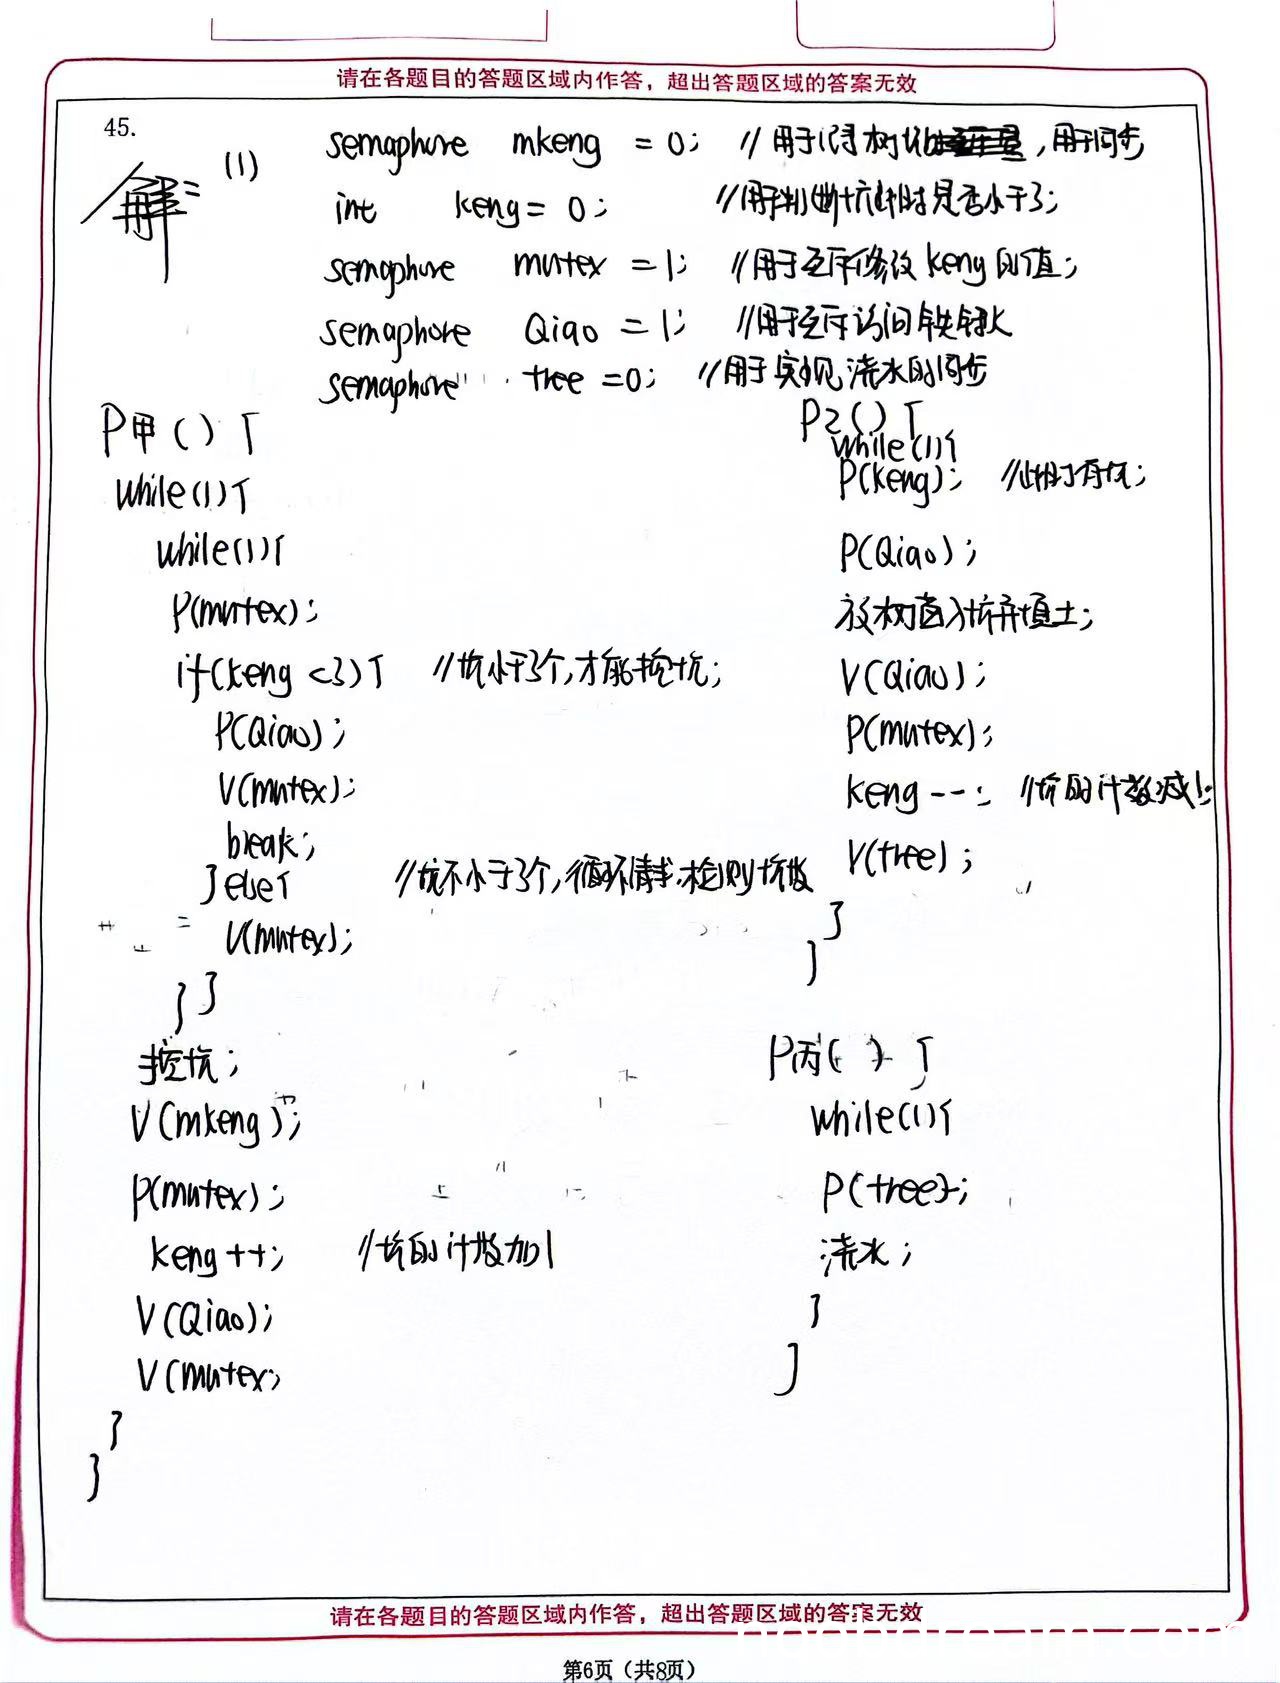 请在各题目的答题区域内作答，超出答题区域的答案无效
45.
解: (1) semaphore mkeng = 0; //用于记录树坑, 用于同步
int keng = 0; //用判断坑此时是否小于3;
semaphore mutex = 1; //用于互斥修改keng的值;
semaphore Qiao = 1; //用于互斥访问铁锹
semaphore tree = 0; //用于实现浇水的同步
P甲(){
while(1){
while(1){
P(mutex);
if(keng <3){ //坑小于3个,才能挖坑;
P(Qiao);
V(mutex);
break;
}else{ //坑不小于3个,循环请求,检测坑数
V(mutex);
} }
挖坑;
V(mkeng);
P(mutex);
keng++; //坑的计数加1
V(Qiao);
V(mutex;
}
}
P乙(){
while(1){
P(keng); //此时有坑;
P(Qiao);
放树苗入坑并填土;
V(Qiao);
P(mutex);
keng--; //坑的计数减1;
V(tree);
}
}
P丙( ){
while(1){
P(tree);
浇水;
}
}
请在各题目的答题区域内作答，超出答题区域的答案无效
第6页（共8页）